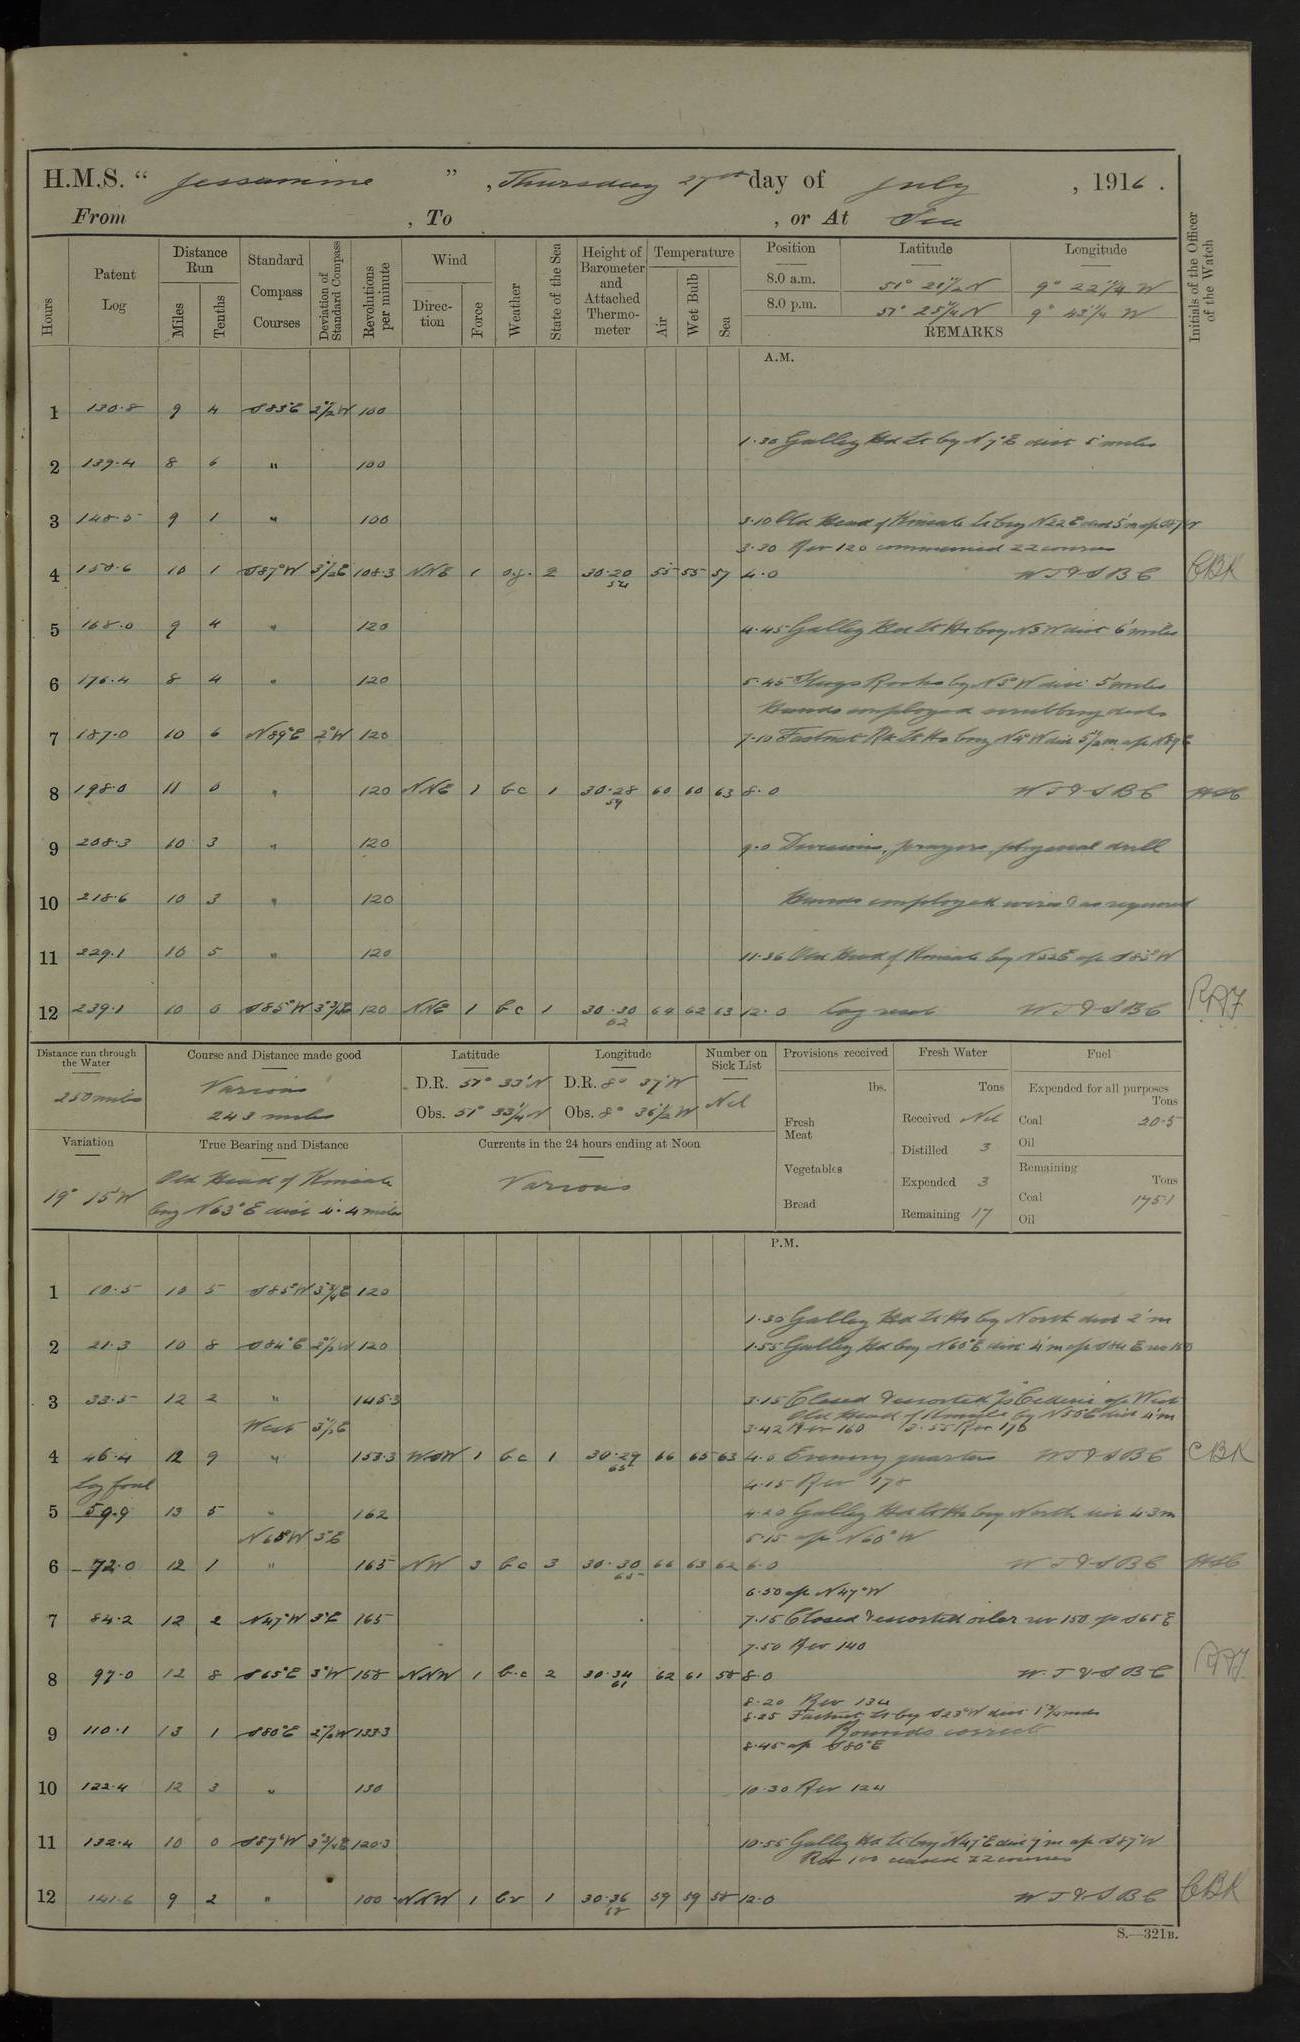 H.M.S. “ Jessamine ” , Thursday 27th day of July , 1916 .
From , To , or At Sea
Hours Patent Log Distance Run Miles Tenths Standard Compass Courses Deviation of Standard Compass Revolutions per minute Wind Direction Force Weather State of the Sea Height of Barometer and Attached Thermometer Temperature Air Wet Bulb Sea Position Latitude Longitude Initials of the Officer of the Watch
8.0 a.m. 51° 21½ N 9° 22¼ W
8.0 p.m. 51° 25¼ N 9° 43¼ W
REMARKS
A.M.
1 130.8 9 4 S83°E 2½W 100
1.30 Galley Hd Lt by N7°E dist 5 miles
2 139.4 8 6 " 100
3 148.5 9 1 " 100 3.10 Old Head of Kinsale Lt brg N22E dist 5'm a/c S87W
3.30 Rev 120 commenced ZZ courses
4 158.6 10 1 S87°W 3½E 108.3 NNE 1 o.g. 2 30.20 54 55 55 57 4.0 W T & S B C CBK
5 168.0 9 4 " 120 4.45 Galley Hd Lt Ho brg N3W dist 6 miles
6 176.4 8 4 " 120 5.45 Stags Rocks by N5°W dist 5 miles
Hands employed scrubbing decks
7 187.0 10 6 N89°E 2°W 120 7.10 Fastnet Rk Lt Ho brng N4°W dist 5½m a/c N89E
8 198.0 11 0 " 120 NNE 1 bc 1 30.28 59 60 60 63 8.0 W T & S B C
9 208.3 10 3 " 120 9.0 Divisions, prayers, physical drill
10 218.6 10 3 " 120 Hands employed wires & as required
11 229.1 10 5 " 120 11.36 Old Head of Kinsale by N32E a/c S85°W
12 239.1 10 0 S85°W 3¾E 120 NNE 1 bc 1 30.30 62 64 62 63 12.0 Log reset W T & S B C
Distance run through the Water Course and Distance made good Latitude Longitude Number on Sick List Provisions received Fresh Water Fuel
250 miles Various 243 miles D.R. 51° 33'N D.R. 8° 37'W Nil lbs. Tons Expended for all purposes Tons
Obs. 51° 33¼ N Obs. 8° 36½ W Fresh Meat Received Nil Coal 20.5
Variation True Bearing and Distance Currents in the 24 hours ending at Noon Distilled 3 Oil
19° 15'W Old Head of Kinsale Various Vegetables Expended 3 Remaining Tons
brg N63°E dist 4.4 miles Bread Remaining 17 Coal 175.1
Oil
P.M.
1 10.5 10 5 S85°W 3¾E 120
1.30 Galley Hd Lt Ho by North dist 2'm
2 21.3 10 8 S84°E 2½W 120 1.55 Galley Hd brg N60°E dist 4'm a/c S84E rev 150
3 33.5 12 2 " 145.3 3.15 Closed & escorted S/S a/c West
Old Head of Kinsale by N50°E dist 4'm
West 3½E 3.42 Rev 160 3.55 Rev 170
4 46.4 12 9 " 153.3 WSW 1 bc 1 30.29 65 66 65 63 4.0 Evening quarters W T & S B C CBK
Log foul 4.15 Rev 178
5 59.9 13 5 " 162 4.20 Galley Hd Lt Ho brg North dist 4.3m
N60°W 3°E 5.15 a/c N60°W
6 72.0 12 1 " 165 NW 3 bc 3 30.30 65 66 63 62 6.0 W T & S B C
6.50 a/c N47°W
7 84.2 12 2 N47°W 3°E 165 7.15 Closed & escorted oiler rev 150 a/c S65E
7.50 Rev 140
8 97.0 12 8 S65°E 3°W 158 NNW 1 b.c 2 30.34 61 62 61 58 8.0 W. T & S B C
8.20 Rev 134
8.25 Fastnet Lt brg S23°W dist 1¾ mls
Rounds correct
9 110.1 13 1 S80°E 2½W 133.3 8.45 a/c S80°E
10 122.4 12 3 " 130 10.30 Rev 124
11 132.4 10 0 S87°W 3¾E 120.3 10.55 Galley Hd Lt brg N47°E dist 7'm a/c S87°W
Rev 100 ceased ZZ courses
12 141.6 9 2 " 100 NNW 1 bv 1 30.36 62 59 59 58 12.0 W T & S B C CBK
S.—321B.